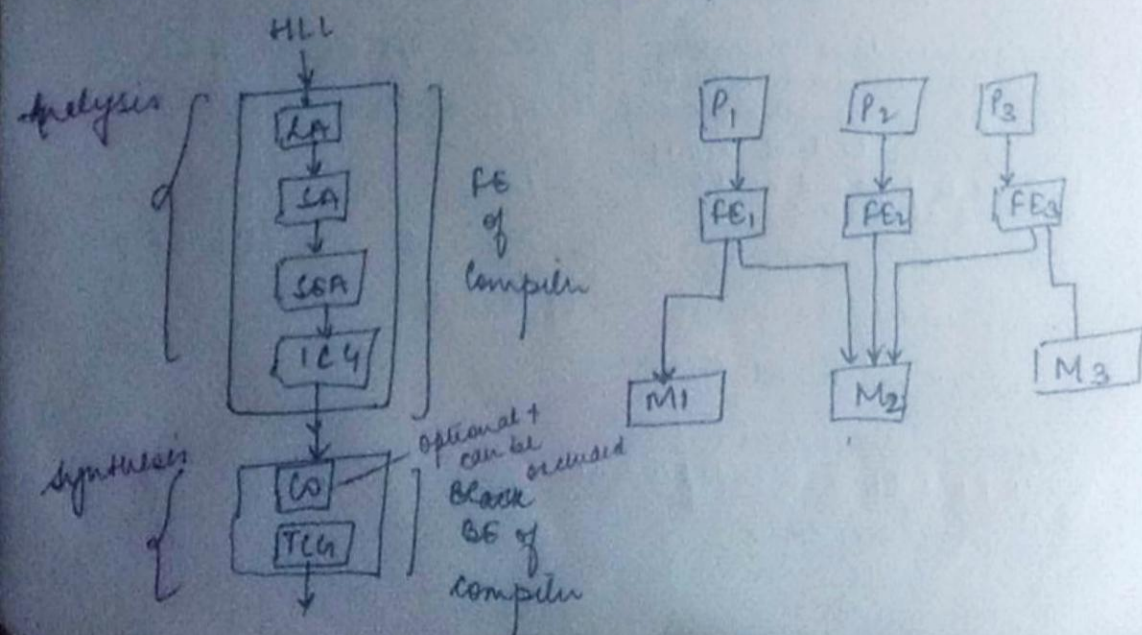 HLL
Analysis
LA
SA
SEA
ICG
FE
of
Compiler
Synthesis
CO
TCG
optional +
can be
Black
BE of
compiler
P1 P2 P3
FE1 FE2 FE3
M1 M2 M3